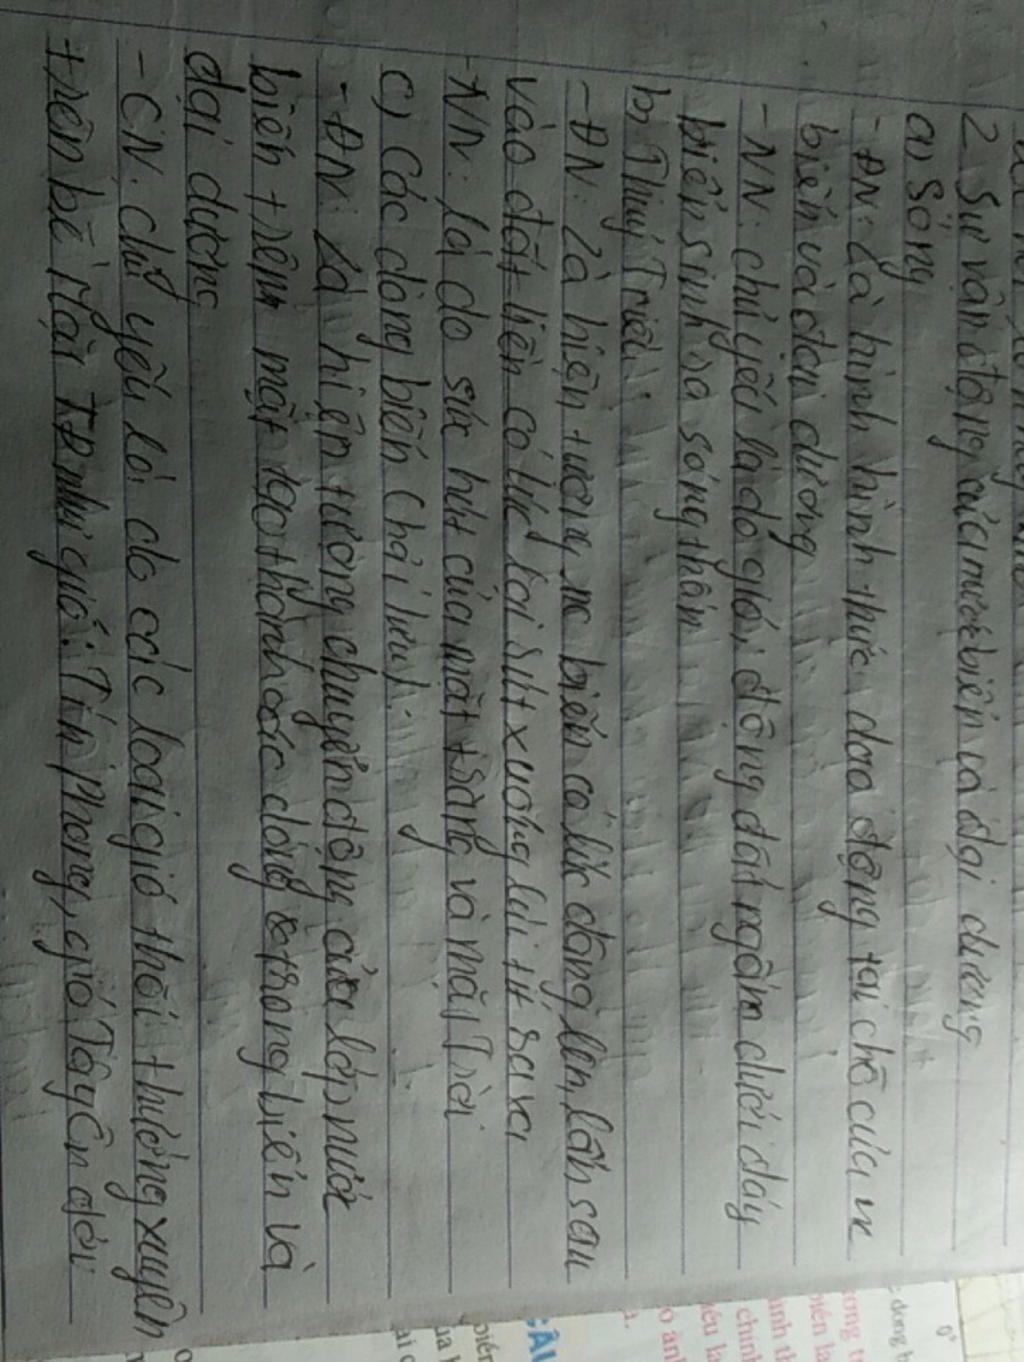 2. Sự vận động của nước biển và đại dương
a) Sóng
- ĐN: Là hình hình thức dao động tại chỗ của nc
biển và đại dương
- NN: chủ yếu là do gió, động đất ngầm dưới đáy
biển sinh ra sóng thần
b) Thuỷ Triều:
- ĐN: Là hiện tượng nc biển có lúc dâng lên, lấn sâu
vào đất liền có lúc lại sụt xuống lùi tít ra xa
- NN: là do sức hút của mặt trăng và mặt Trời
c) Các dòng biển (hải lưu):
- ĐN: Là hiện tượng chuyển động của lớp nước
biển trên mặt tạo thành các dòng trong biển và
đại dương
- CN: chủ yếu là do các loại gió thổi thường xuyên
trên bề mặt TĐ như gió: Tín phong, gió Tây ôn đới